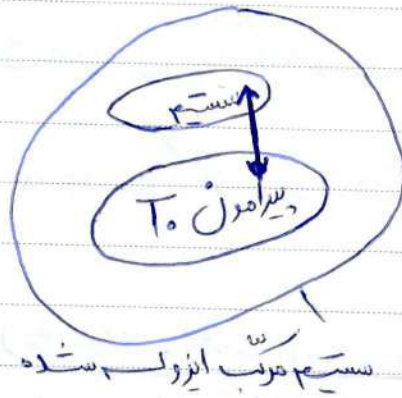 سیستم
پیرامون T₀
سیستم مرکب ایزوله شده